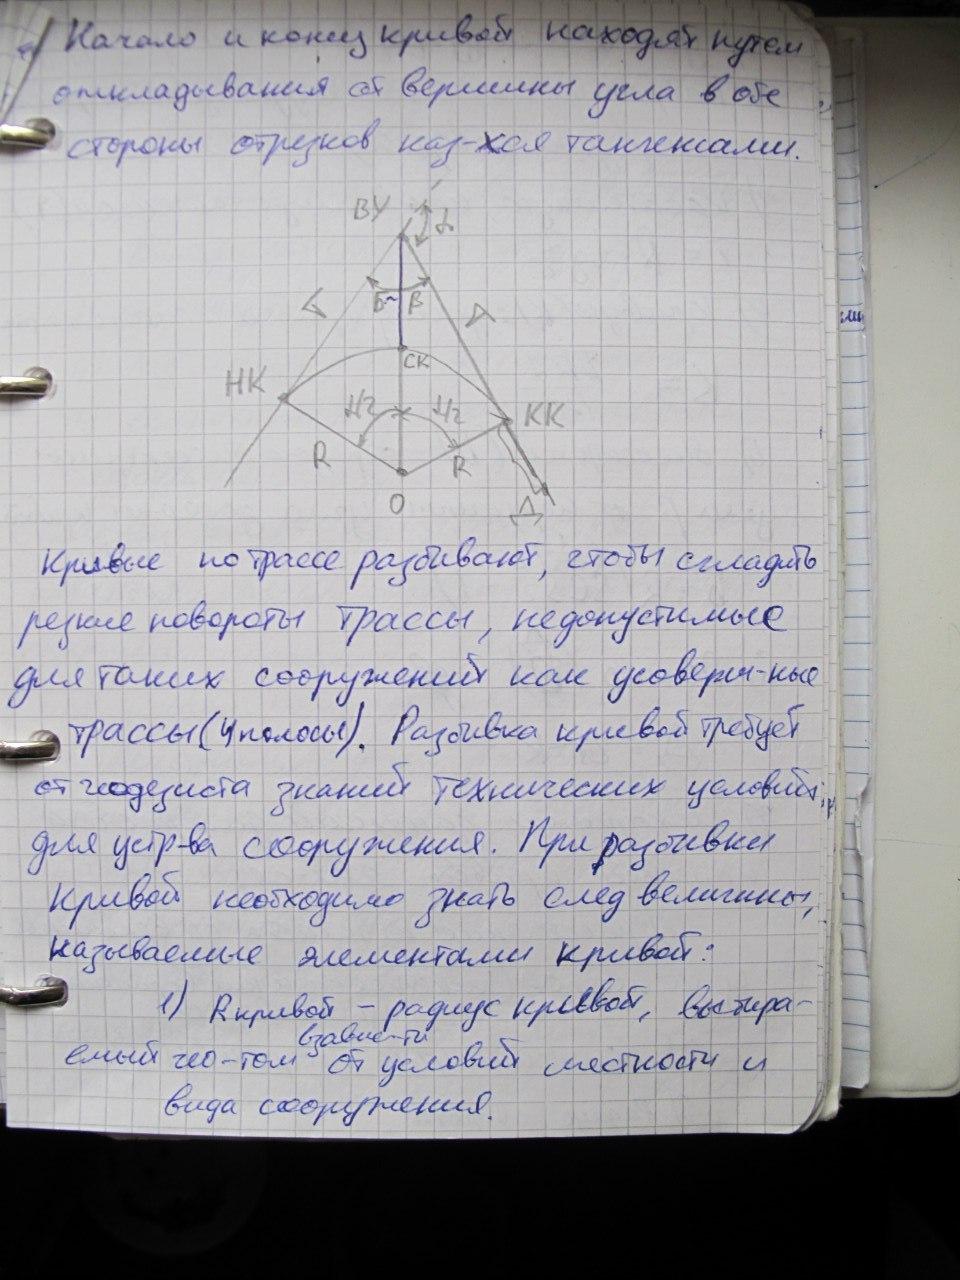 Начало и конец кривой находят путем
откладывания от вершины угла в обе
стороны отрезков наз-хся тангенсами.
ВУ
α
Б
В
Т
Т
СК
НК
КК
R
R
О
Д
Кривые по трассе разбивают, чтобы сгладить
резкие повороты трассы, недопустимые
для таких сооружений как усоверш-ные
трассы (4 полосы). Разбивка кривой требует
от геодезиста знаний технических условий
для устр-ва сооружения. При разбивки
кривой необходимо знать след величины,
называемые элементами кривой:
1) R кривой – радиус кривой, выбира-
взавис-ти
емый гео-том от условий местности и
вида сооружения.